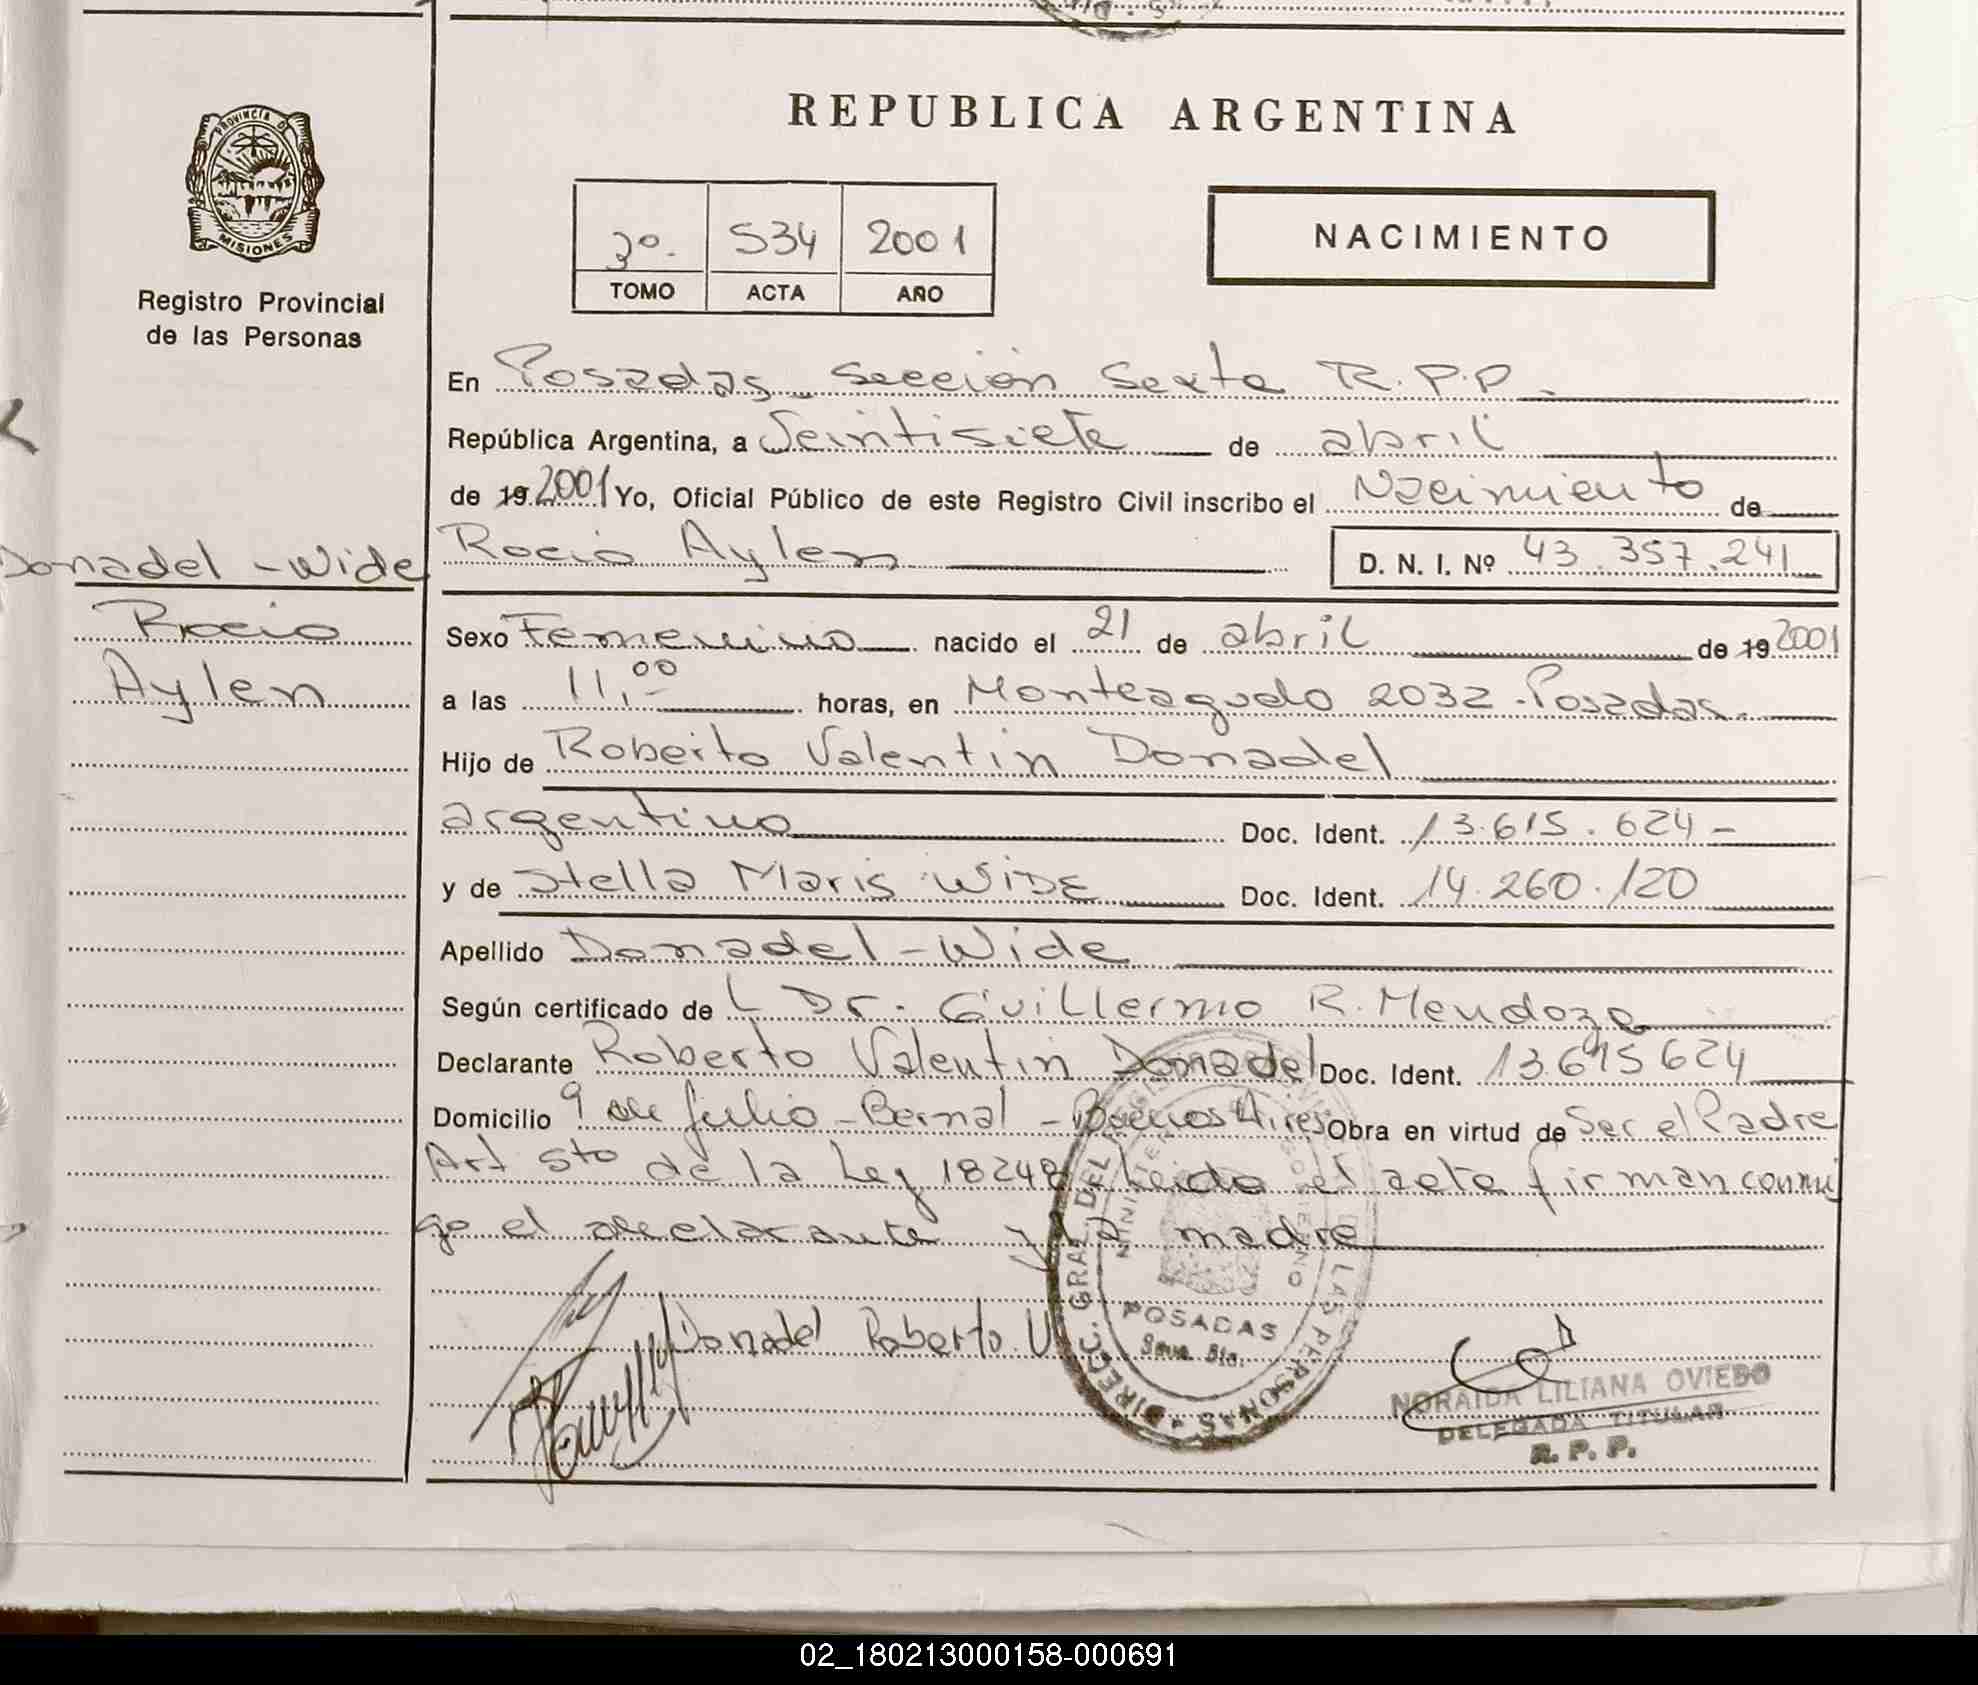 REPUBLICA ARGENTINA
PROVINCIA D
MISIONES
Registro Provincial
de las Personas
3º. 534 2001
TOMO ACTA AÑO
NACIMIENTO
En Posadas Sección Sexta R.P.P.
República Argentina, a Veintisiete de abril
de 19 2001 Yo, Oficial Público de este Registro Civil inscribo el Nacimiento de
Rocio Aylen D. N. I. Nº 43.357.241
Donadel - Wide
Rocio
Aylen
Sexo Femenino nacido el 21 de abril de 19 2001
a las 11,00 horas, en Monteagudo 2032 - Posadas.
Hijo de Roberto Valentin Donadel
argentino Doc. Ident. 13.615.624 -
y de Stella Maris WIDE Doc. Ident. 14.260.120
Apellido Donadel - Wide
Según certificado de L Dr. Guillermo R. Mendoza
Declarante Roberto Valentin Donadel Doc. Ident. 13.615624
Domicilio 9 de Julio - Bernal - Buenos Aires Obra en virtud de Ser el Padre
Art 5to de la Ley 18248 Leida el acta firman conmi
go el declarante y la madre
Donadel Roberto V.
DIRECC. GRAL. DEL LAS PERSONAS
POSADAS
NORAIDA LILIANA OVIEDO
DELEGADA TITULAR
R. P. P.
02_180213000158-000691